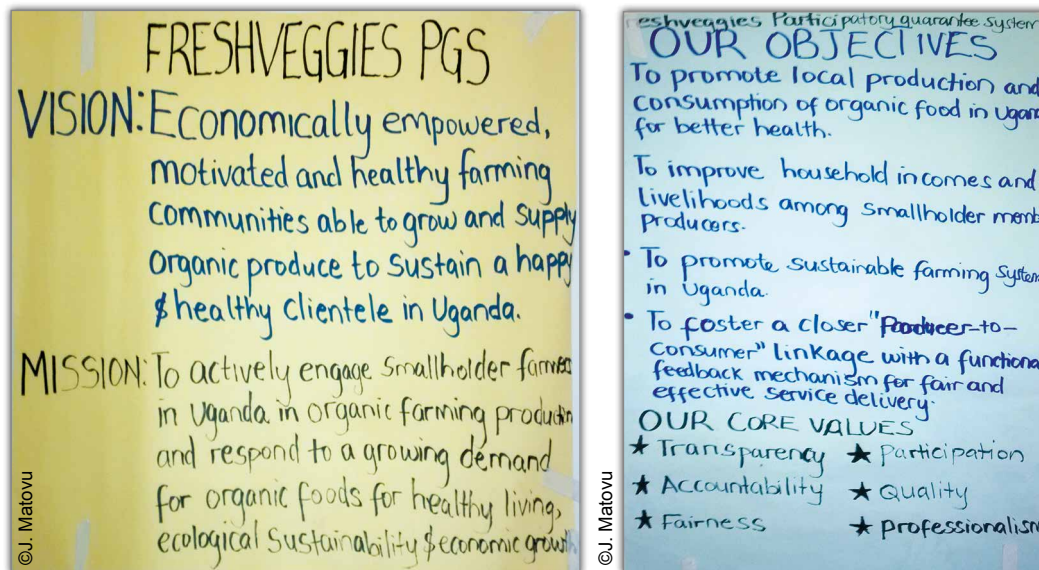 FRESHVEGGIES PGS
VISION: Economically empowered,
motivated and healthy farming
communities able to grow and supply
organic produce to sustain a happy
$ healthy clientele in Uganda.
MISSION: To actively engage smallholder farmers
in Uganda in organic farming production
and respond to a growing demand
for organic foods for healthy living,
ecological sustainability $ economic growth
©J. Matovu
eshveggies Participatory guarantee system
OUR OBJECTIVES
To promote local production and
consumption of organic food in Ugan
for better health.
To improve household incomes and
livelihoods among smallholder memb
producers.
• To promote sustainable farming system
in Uganda.
• To foster a closer "Producer-to-
consumer" linkage with a functiona
feedback mechanism for fair and
effective service delivery.
OUR CORE VALUES
★ Transparency ★ Participation
★ Accountability ★ Quality
★ Fairness ★ professionalism
©J. Matovu